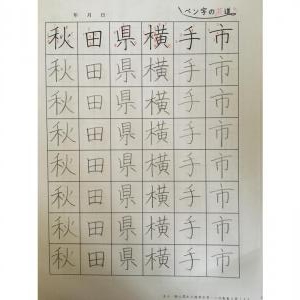 年 月 日 ペン字の 道
秋田県横手市
秋田県横手市
秋田県横手市
秋田県横手市
秋田県横手市
秋田県横手市
秋田県横手市
秋田県横手市